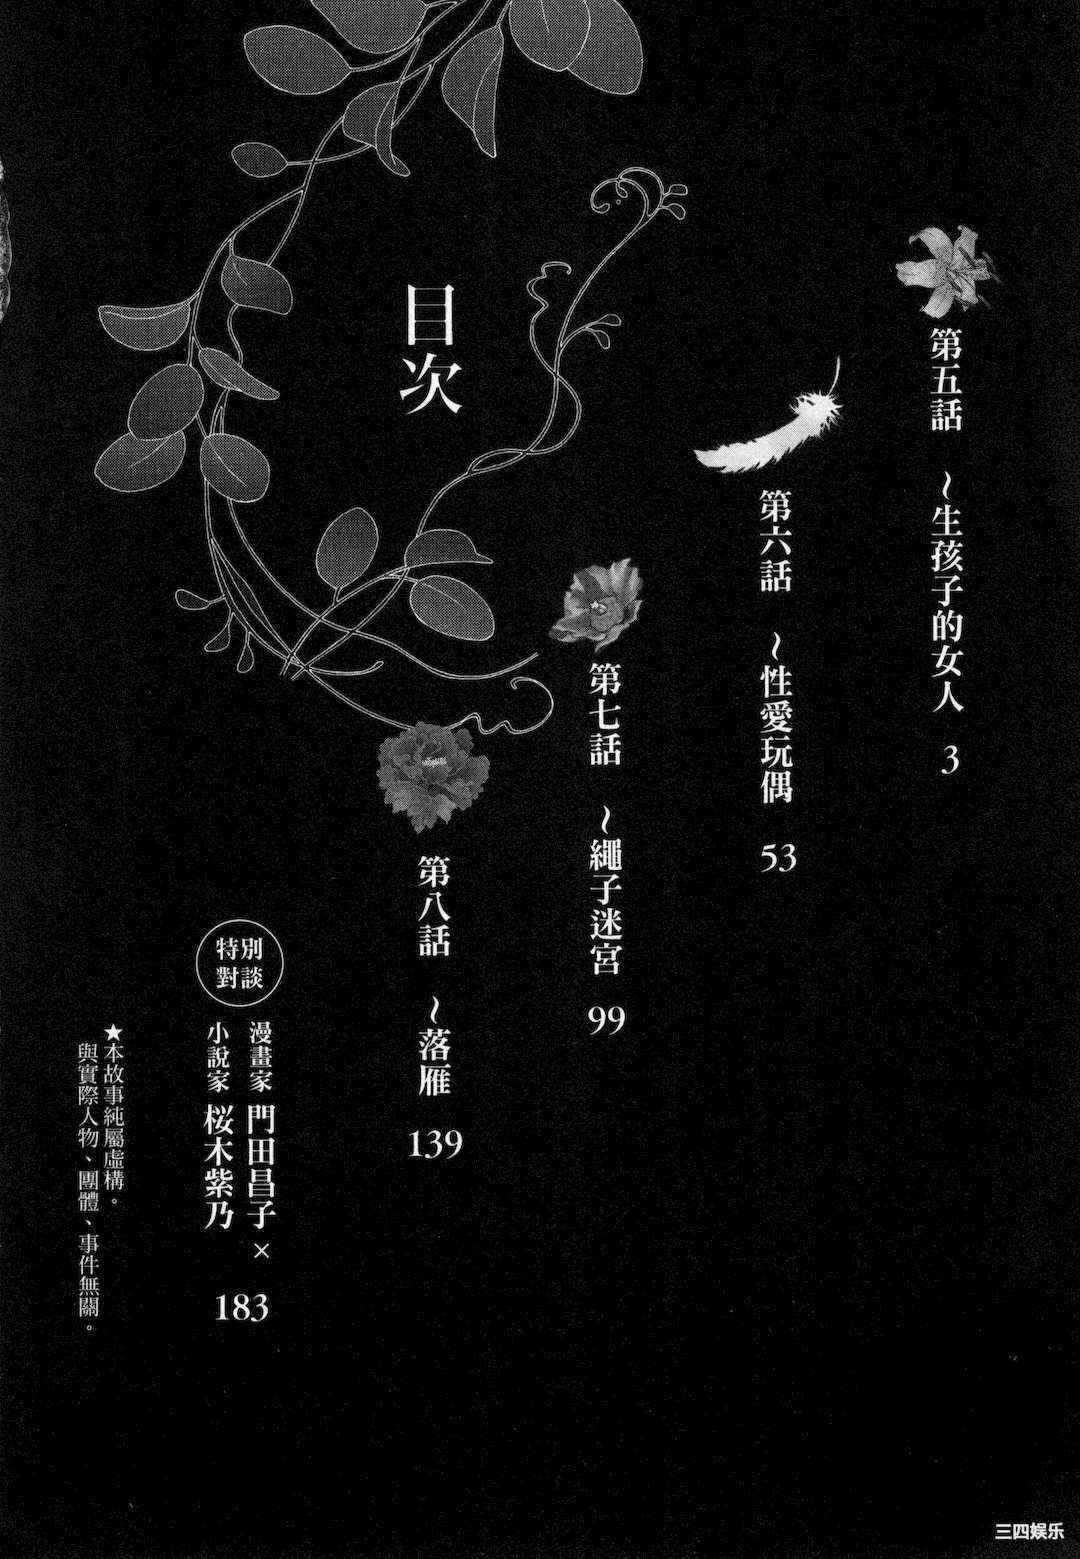 目次
第五話 ~生孩子的女人 3
第六話 ~性愛玩偶 53
第七話 ~繩子迷宮 99
第八話 ~落雁 139
特別
對談
漫畫家 門田昌子×
小說家 桜木紫乃
183
★本故事純屬虛構。
與實際人物、團體、事件無關。
三四娱乐